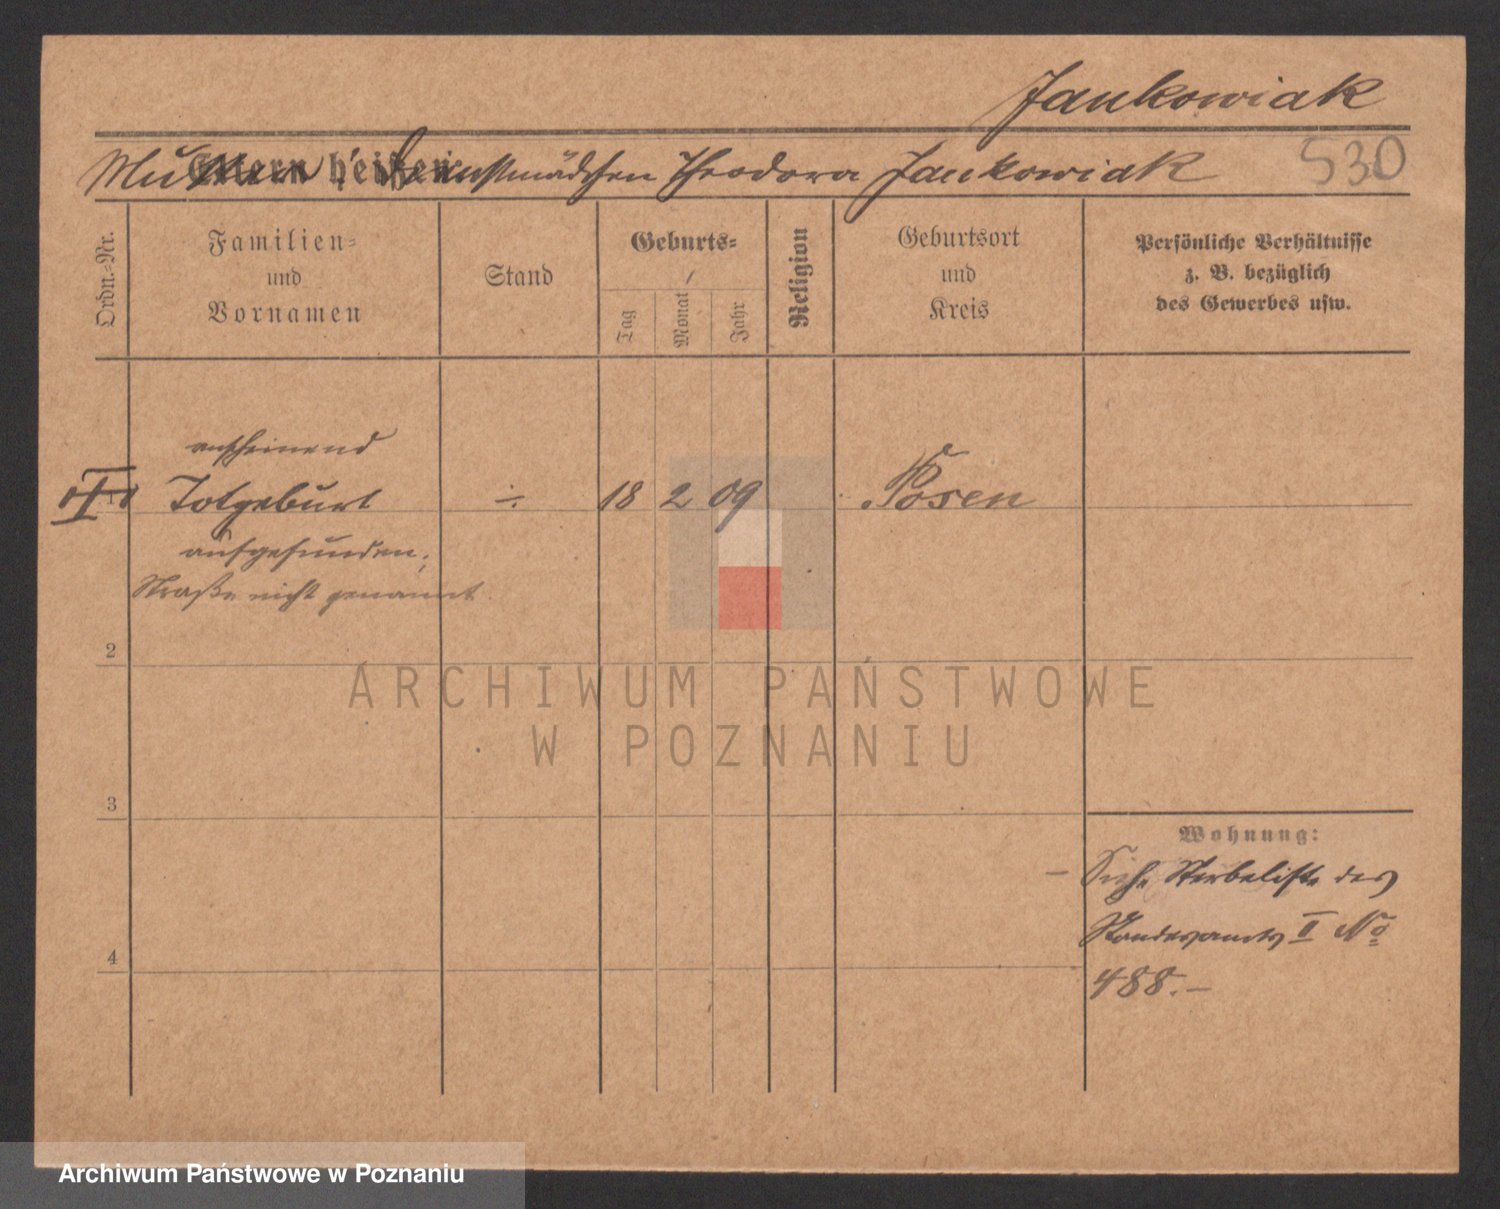 Jankowiak
Eltern heißen
Mutter: Dienstmädchen Theodora Jankowiak 530
Ordn.-Nr.
Familien-
und
Vornamen
Stand
Geburts-
Tag
Monat
Jahr
Religion
Geburtsort
und
Kreis
Persönliche Verhältnisse
z. B. bezüglich
des Gewerbes usw.
anscheinend
1 Totgeburt ÷ 18 2 09 Posen
aufgefunden;
Straße nicht genannt
2
ARCHIWUM PAŃSTWOWE
W POZNANIU
3
Wohnung:
– Siehe Sterbeliste des
Standesamts II No
4
488.–
Archiwum Państwowe w Poznaniu